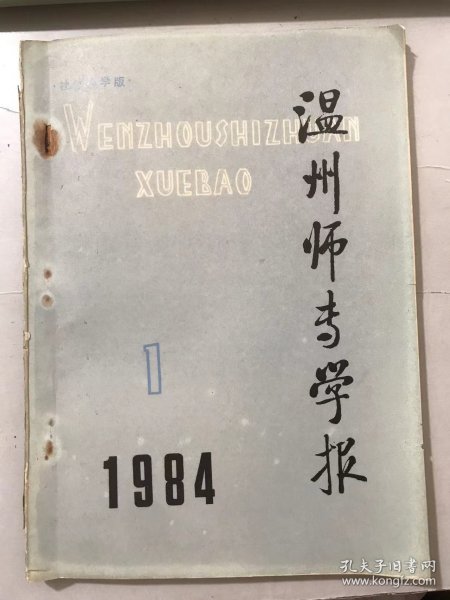 ·社会科学版·
WENZHOUSHIZHUAN
XUEBAO
温州师专学报
1
1984
孔夫子旧书网
www.kongfz.com